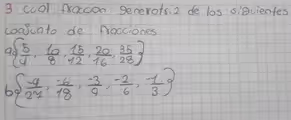 3 cual fraccon generatriz de los siguientes
conjunto de fracciones
a) {5/4, 10/8, 15/12, 20/16, 35/28}
b) {-9/27, -6/18, -3/9, -2/6, -1/3}